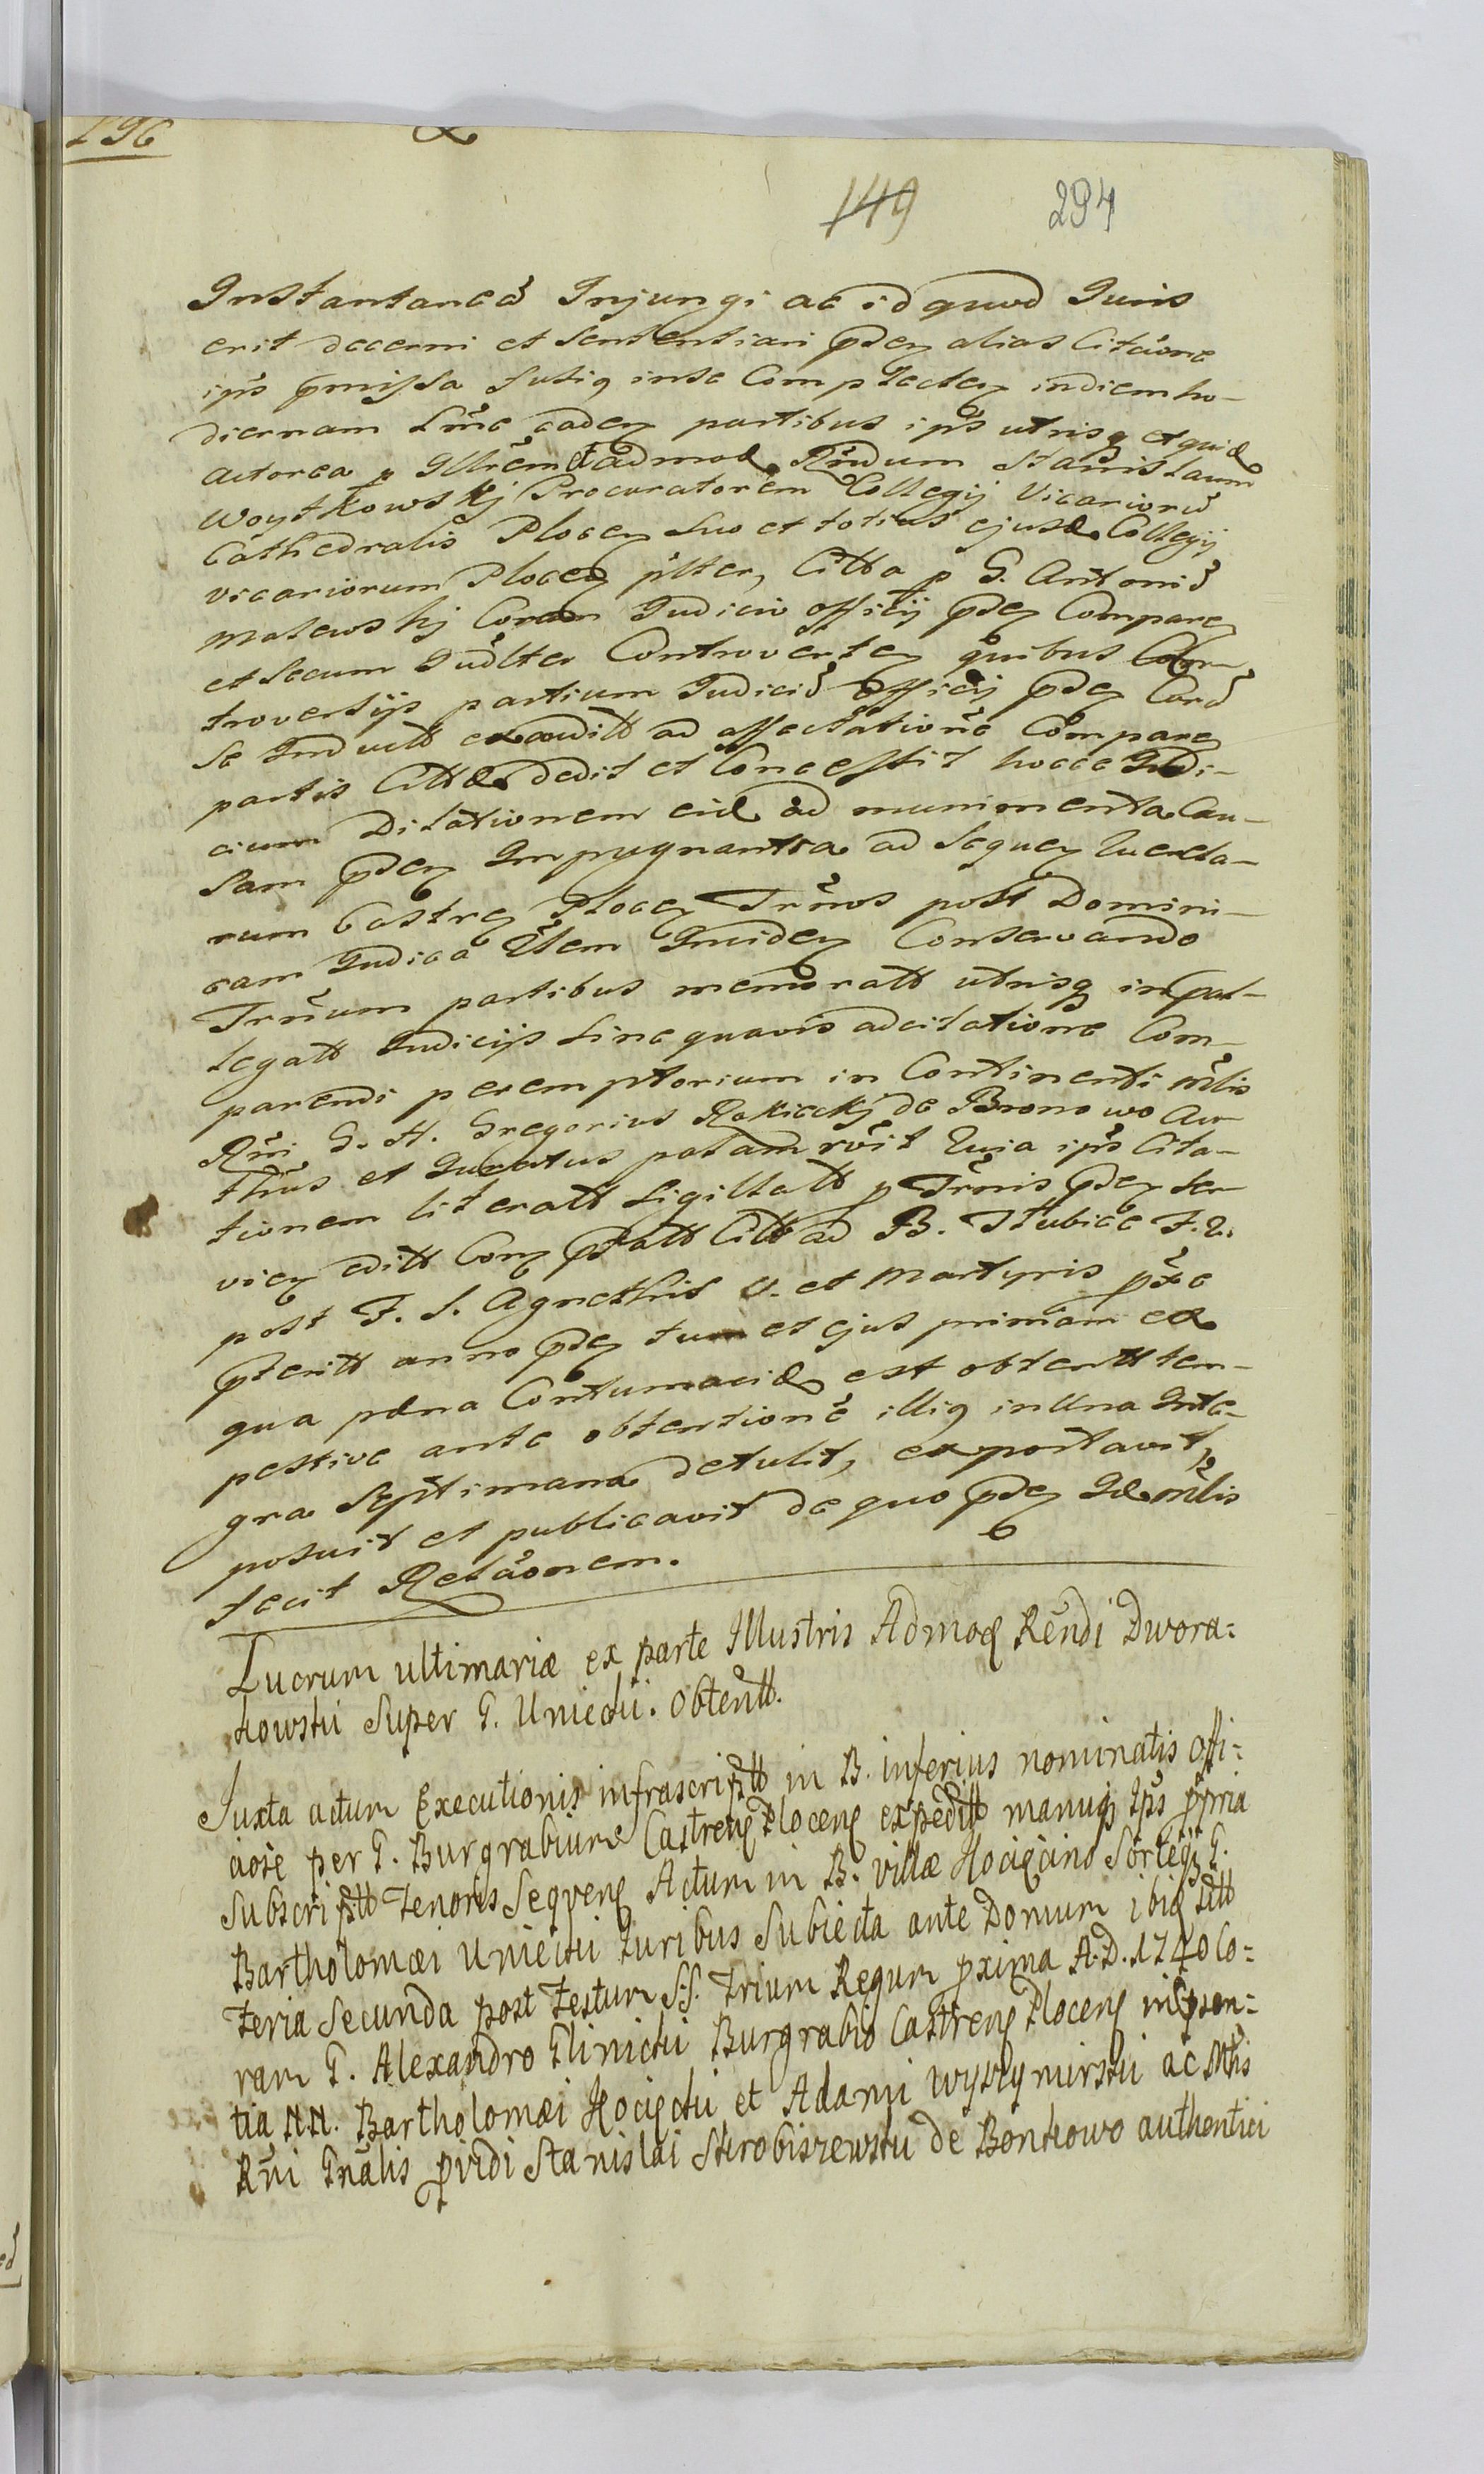 196
149 294
Instantaneā Injungi ac id quod Juris
erit decerni et Sententiari pden alias Citaōne
ips pmissa fusig inse Complecten indiem ho-
diernam Lñe eaden partibus ips utrisq et quid
actorea p Illrem & admod Rñdum Stanislaum
Woytkowskij Procuratorem Collegij Vicariorū
Cathedralis Plocen suo et totius ejusd Collegij
vicariorum Plocen plter, Citta p G. Antoniū
Malewskij Coram Judicio officij pden Comparen
et secum Judlter Controverten quibus Con-
troversijs partium Judiciū Officij pden Corā
se Induett exauditt ad affectationē Comparen
partis Cittæ dedit et Concessit hocce Judi-
cium Dilationem eid ad munimenta Cau-
sam pden Impugnantia ad sequen Querela-
rum Castren Plocen Trños post Domini-
cam Judica Item Ibidem Conservando
Trñum partibus memoratt utrisq in prae-
legatt Judicijs sine quavis adcitatione Com-
parendi peremptorium in Continenti mlis
Rñi G. H. Gregorius Rokickij de Bronowo Au-
thus et Juratus palam rōit Quia ips Cita-
tionem literatt sigillatt p Trñis pden ser
vien editt Con pdatt Citt ad B. Słubice F. 2.
post F. S. Agnethis V. et Martyris pxe
pteritt anno pden tum et ejus primam ex
qua pæna Contumaciæ est obtentt tem-
pestive ante obtentionē illig in Una Inte-
gra Septimana detulit, exportavit,
posuit et publicavit de quo pden Id mlis
fecit Relaōnem.
Lucrum ultimariæ ex parte Illustris Admod Rēndi Dwora=
kowskii Super G. Unieckii. obtentt.
Juxta actum Executionis infrascriptt in B. inferius nominatis offi=
ciose per G. Burgrabium Castren Plocen expeditt manuq Ips ppria
Subscriptt Tenoris Sequen Actum in B. villæ Kocięcino Sortegz G.
Bartholomæi Unieckii Juribus Subiecta ante Domum ibid sitt
Feria Secunda post Festum S.S. Trium Regum pxima A.D. 1740 Co=
ram G. Alexandro Glinickii Burgrabio Castren Plocen in pſen=
tia N.N. Bartholomæi Kocięckii et Adami Wyszymirskii ac Mtis
Rñi Gnãlis pvidi Stanislai Skrobiszewskii de Bonkowo authentici